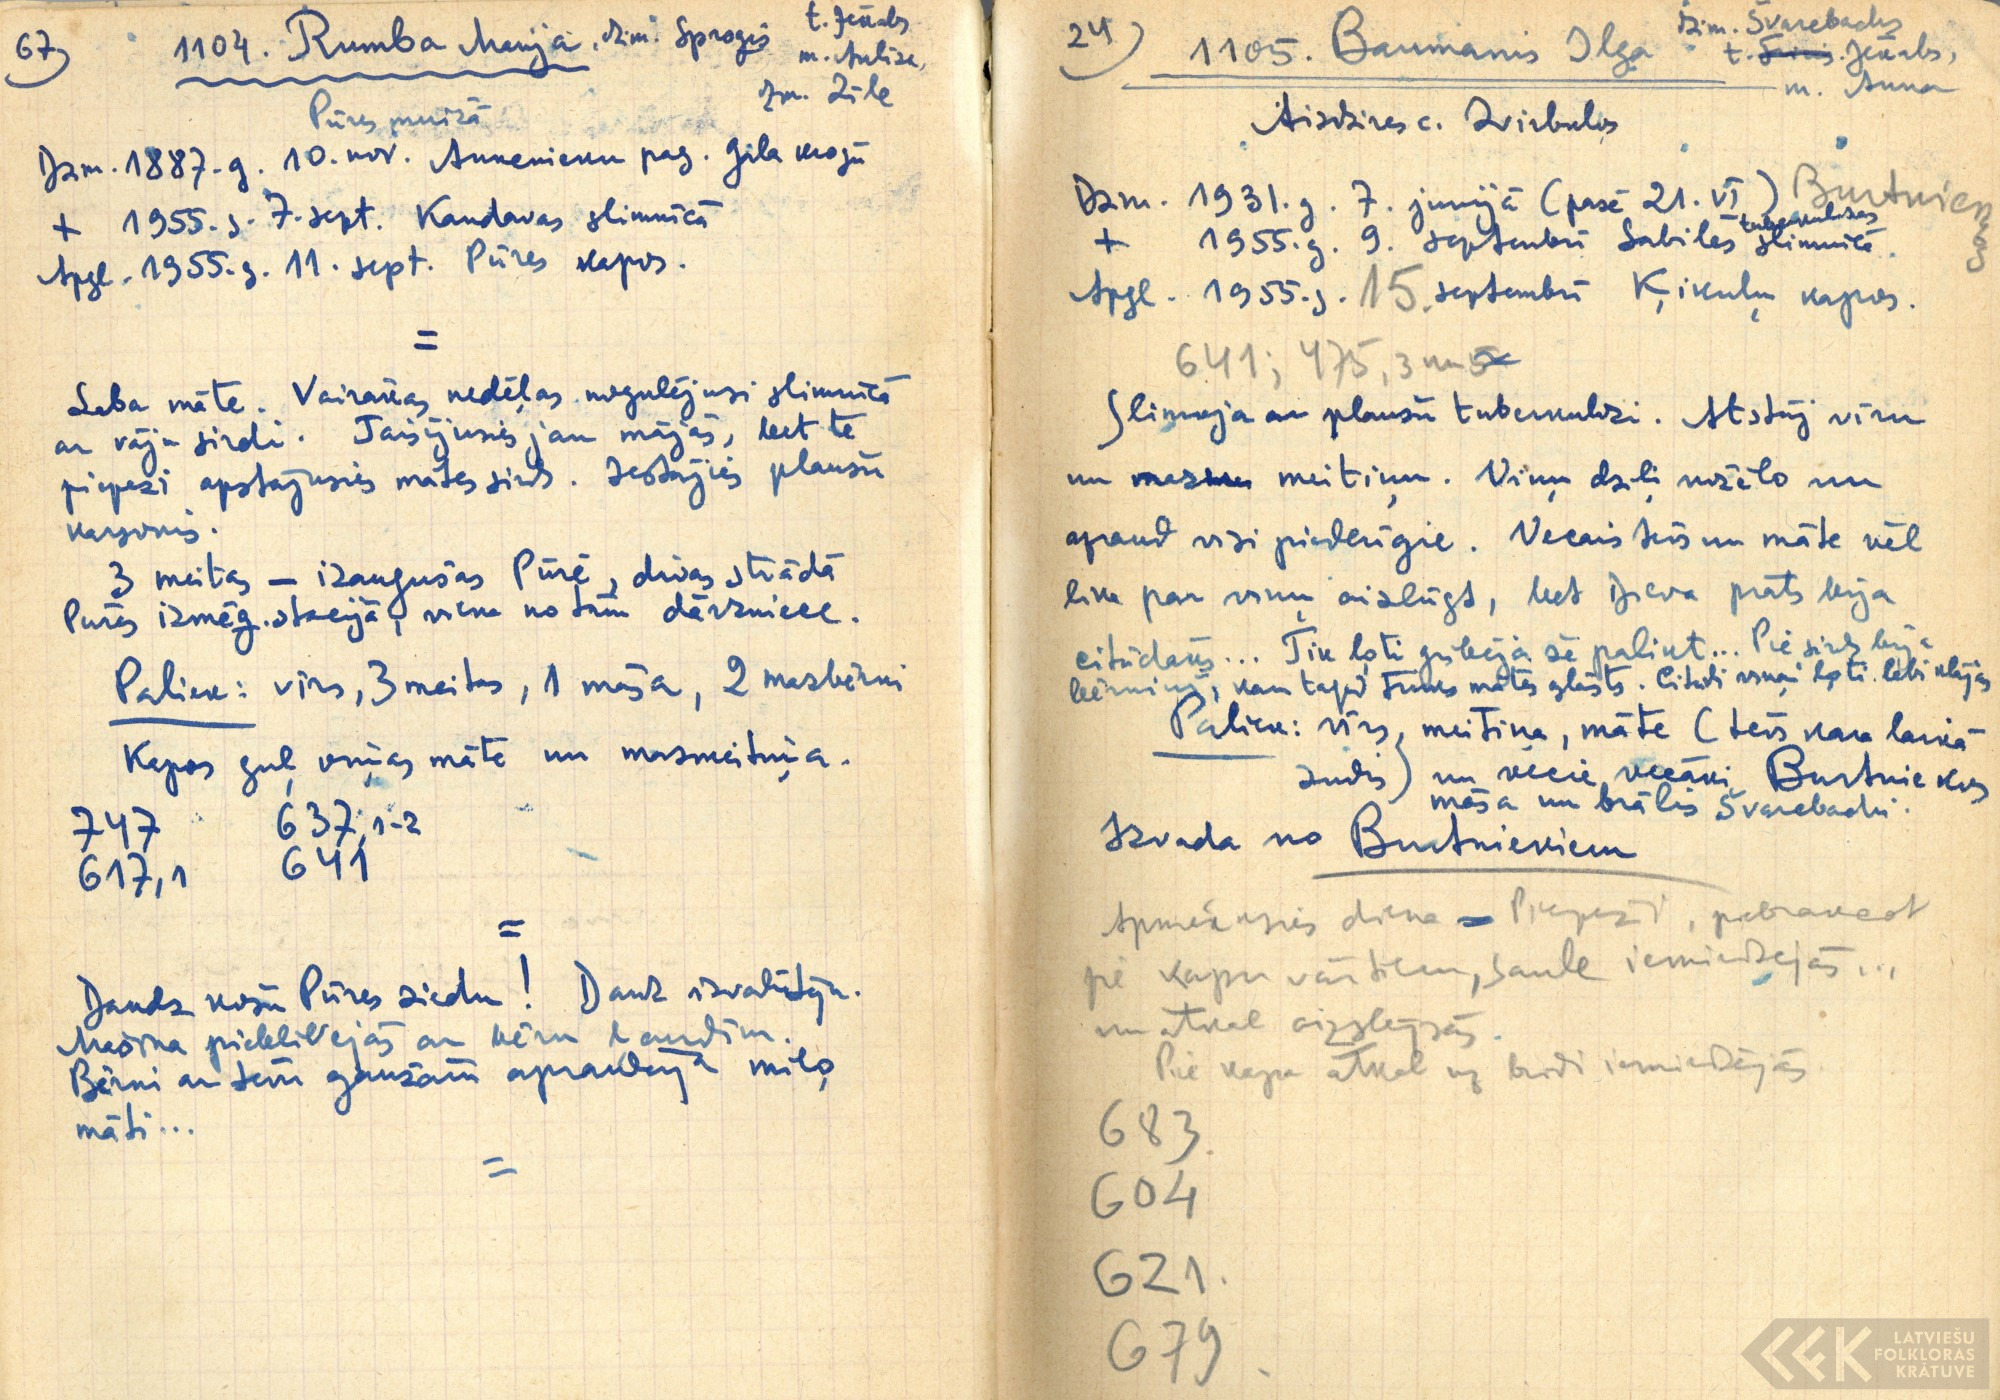 67) 1104. Rumba Marija, dzim. Sproģis t. Jēkabs
m. Anlīze,
dzm. Zīle
Pūres muižā
Dzim. 1887. g. 10. nov. Annenieku pag. Gaļa krogū
+ 1955. g. 7. sept. Kandavas slimnīcā
Apgl. 1955. g. 11. sept. Pūres kapos.
=
Laba māte. Vairākas nedēļas nogulējusi slimnīcā
ar vāju sirdi. Taisījusies jau mājās, bet te
piepeži apstājusies mātes sirds. Iestājies plaušu
karsonis.
3 meitas – izaugušas Pūrē, divas strādā
Pūres izmēģ. stacijā, viena no tām dārzniece.
Paliek: vīrs, 3 meitas, 1 māsa, 2 mazbērni
Kapos guļ viņas māte un mazmeitiņa.
747 637, 1-2
617,1 641
=
Daudz košu Pūres ziedu! Daudz izvadītāju.
Mašīna piebilvejās ar bēru ļaudīm.
Bērni ar tēvu gaužām apraudāja mīļo
māti...
=
24) 1105. Baumanis Ilga dzim. Švarcbachs
t. Jēkabs,
m. Anna
Aizdzires c. Zvirbuļos
Dzim. 1931. g. 7. jūnijā (pasē 21. VI) Burtniek
pag
+ 1955. g. 9. septembrī Sabiles tuberkulozes slimnīcā.
Apgl. 1955. g. 15. septembrī Ķikuļu kapos.
641; 475, 3 un 5
Slimoja ar plaušu tuberkulozi. Atstāj vīru
un mazu meitiņu. Viņu dziļi nožēlo un
apraud visi piederīgie. Vecais tēvs un māte vēl
lika par viņu aizlūgt, bet Dieva prāts bija
citādāks... Tik ļoti gribēja šē palikt... Pie sirds bija
bērniņš, kam tagad trūks mātes glāsts. Citādi viņai ļoti labi klājās
Paliek: vīrs, meitiņa, māte (tēvs kara laikā
zudis) un vecie vecāki Burtniekos
māsa un brālis Švarcbachi.
Izvada no Burtniekiem
Apmākusies diena – Piepeži, piebraucot
pie kapu vārtiem, saule iemirdzējās...
un atkal aizslēpjās.
Pie kapa atkal uz brīdi iemirdzējās
683.
604
621.
679.
LATVIEŠU
FOLKLORAS
KRĀTUVE